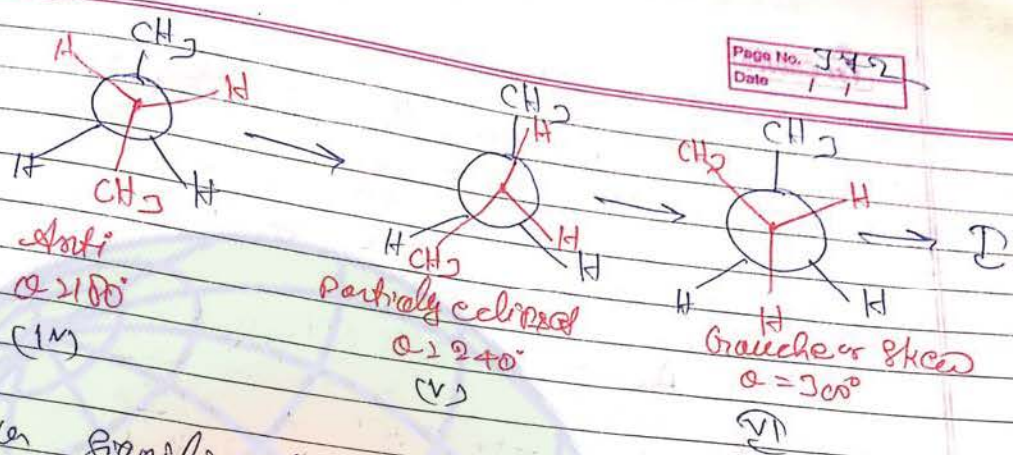 Page No. 342
Date / /
CH3
H
H
H
CH3
H
Anti
θ = 180°
(IV)
CH3
H
H
CH3
H
H
Partialy eclipsed
θ = 240°
(V)
CH3
CH3
H
H
H
H
Gauche or Skew
θ = 300°
VI
I